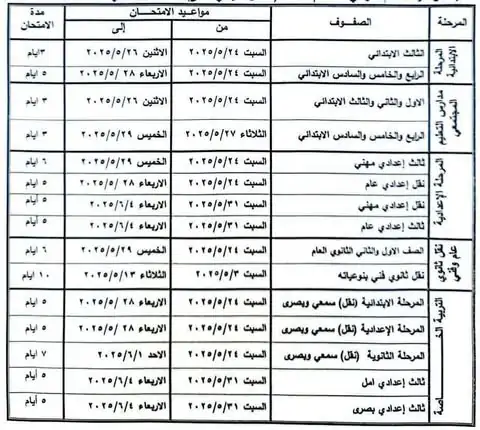 المرحلة الصفوف مواعيد الامتحان مدة الامتحان
من إلى
المرحلة الابتدائية
الثالث الابتدائي السبت ٢٠٢٥/٥/٢٤ الاثنين ٢٠٢٥/٥/٢٦ ٣ ايام
الرابع والخامس والسادس الابتدائي السبت ٢٠٢٥/٥/٢٤ الاربعاء ٢٠٢٥/٥/٢٨ ٥ ايام
مدارس التعليم المجتمعي
الاول والثاني والثالث الابتدائي السبت ٢٠٢٥/٥/٢٤ الاثنين ٢٠٢٥/٥/٢٦ ٣ ايام
الرابع والخامس والسادس الابتدائي الثلاثاء ٢٠٢٥/٥/٢٧ الخميس ٢٠٢٥/٥/٢٩ ٣ ايام
المرحلة الإعدادية
ثالث إعدادي مهني السبت ٢٠٢٥/٥/٢٤ الخميس ٢٠٢٥/٥/٢٩ ٦ ايام
نقل إعدادي عام السبت ٢٠٢٥/٥/٢٤ الاربعاء ٢٠٢٥/٥/٢٨ ٥ ايام
نقل إعدادي مهني السبت ٢٠٢٥/٥/٣١ الاربعاء ٢٠٢٥/٦/٤ ٥ أيام
ثالث إعدادي عام السبت ٢٠٢٥/٥/٣١ الاربعاء ٢٠٢٥/٦/٤ ٥ أيام
نقل ثانوي عام وفني
الصف الاول والثاني الثانوي العام السبت ٢٠٢٥/٥/٢٤ الخميس ٢٠٢٥/٥/٢٩ ٦ ايام
نقل ثانوي فني بنوعياته السبت ٢٠٢٥/٥/٣ الثلاثاء ٢٠٢٥/٥/١٣ ١٠ ايام
التربية الخاصة
المرحلة الابتدائية (نقل) سمعي وبصرى السبت ٢٠٢٥/٥/٢٤ الاربعاء ٢٠٢٥/٥/٢٨ ٥ ايام
المرحلة الإعدادية (نقل) سمعي وبصرى السبت ٢٠٢٥/٥/٢٤ الاربعاء ٢٠٢٥/٥/٢٨ ٥ ايام
المرحلة الثانوية (نقل) سمعي وبصرى السبت ٢٠٢٥/٥/٢٤ الاحد ٢٠٢٥/٦/١ ٧ ايام
ثالث إعدادي امل السبت ٢٠٢٥/٥/٣١ الاربعاء ٢٠٢٥/٦/٤ ٥ أيام
ثالث إعدادي بصرى السبت ٢٠٢٥/٥/٣١ الاربعاء ٢٠٢٥/٦/٤ ٥ أيام